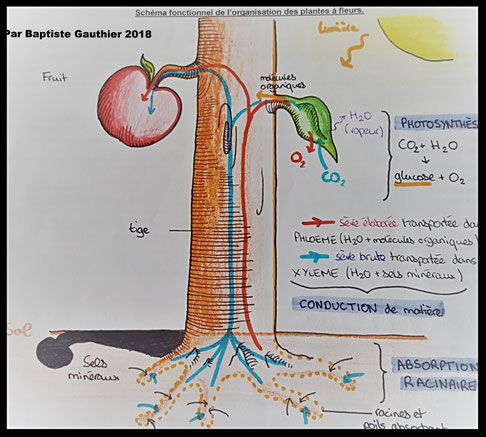 Schéma fonctionnel de l'organisation des plantes à fleurs.
Par Baptiste Gauthier 2018
lumière
Fruit
molécules
organiques
H2O
(vapeur)
O2
CO2
PHOTOSYNTHÈS
CO2 + H2O
↓
glucose + O2
tige
→ sève élaborée transportée dans
PHLOEME (H2O + molécules organiques)
→ sève brute transportée dans
XYLEME (H2O + sels minéraux)
CONDUCTION de matière
Sol
Sels
minéraux
ABSORPTION
RACINAIRE
racines et
poils absorbant